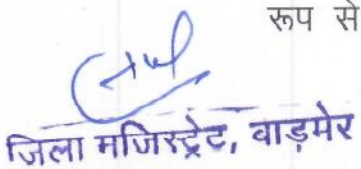 रूप से
जिला मजिस्ट्रेट, बाड़मेर